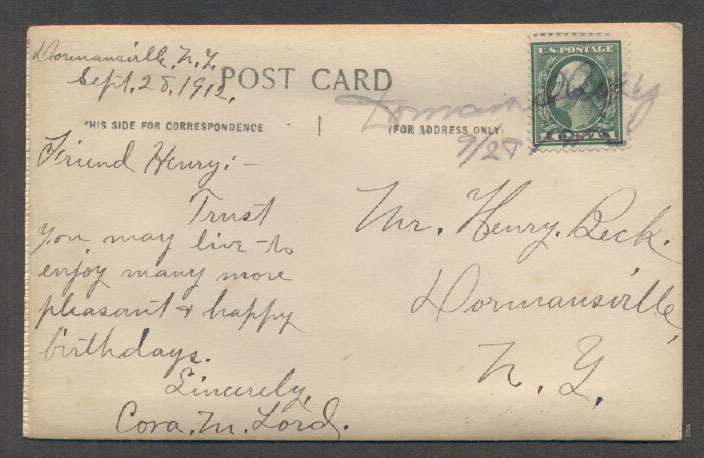 Dormansville, N.Y.
Sept. 28, 1912.
POST CARD
THIS SIDE FOR CORRESPONDENCE
(FOR ADDRESS ONLY)
U.S. POSTAGE
1 CENT 1
9/28
Friend Henry:-
Trust
you may live to
enjoy many more
pleasant & happy
birthdays.
Sincerely,
Cora. M. Lord.
Mr. Henry. Beck.
Dormansville,
N. Y.